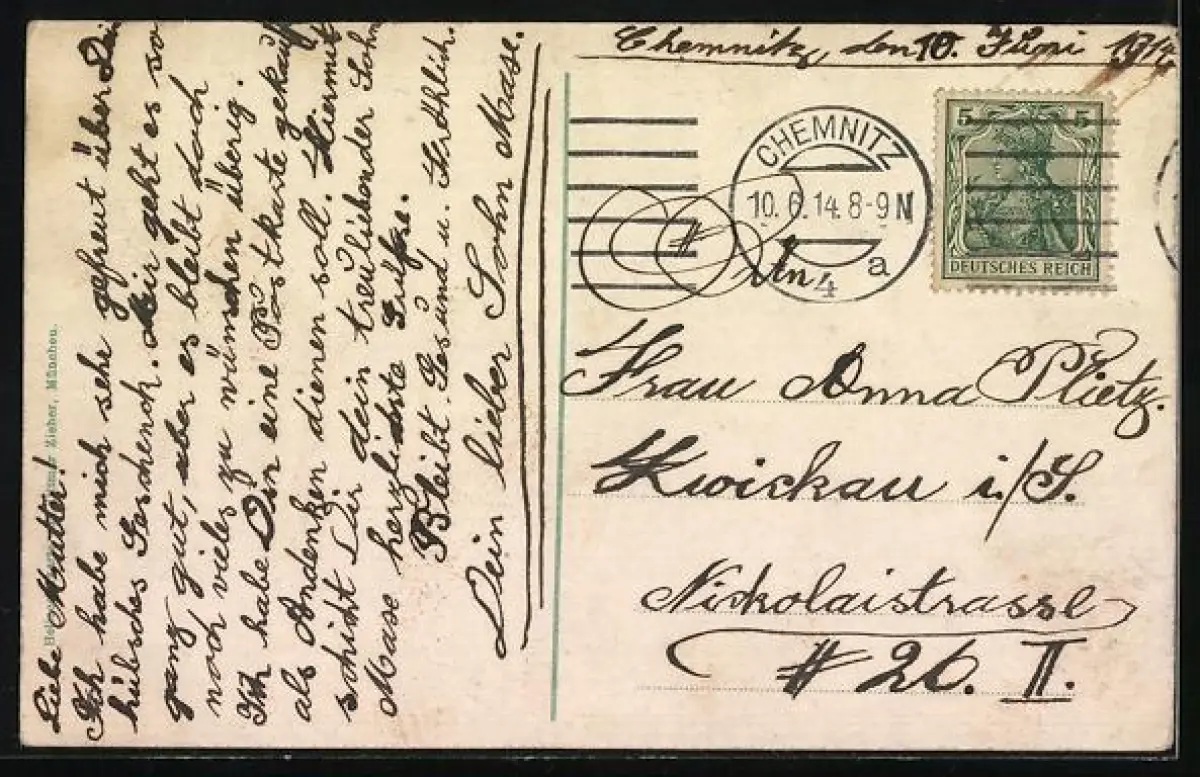 Chemnitz, den 10. Juni 1914
CHEMNITZ
10. 6. 14. 8-9 N
a
5 5
DEUTSCHES REICH
An
Frau Anna Plietz.
Zwickau i./S.
Nickolaistrasse
# 26. II.
Liebe Mutter!
Ich habe mich sehr gefreut über Dein
hübsches Geschenck. Mir geht es so
ganz gut, aber es bleibt doch
noch vieles zu wünschen überig.
Ich habe Dir eine Postkarte gekauft
als Andenken dienen soll. Hiermit
schickt Dir dein treuliebender Sohn
Mase herzlichste Grüsse.
Bleibt Gesund u. Fröhlich.
Dein lieber Sohn Mase.
Zieher, München.